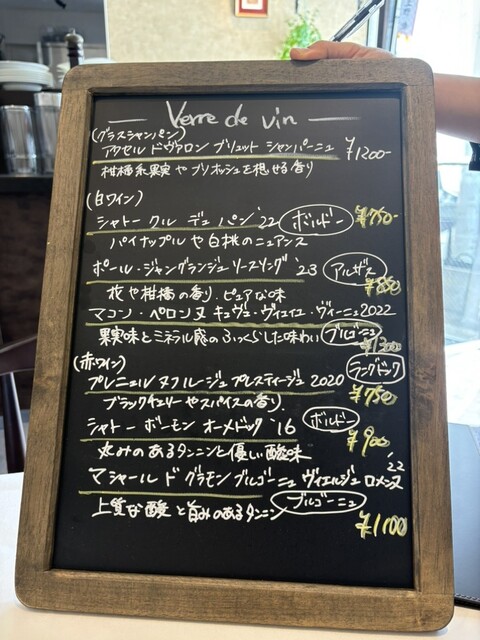 Verre de vin
(グラスシャンパン)
アクセル ドヴァロン ブリュット シャンパーニュ ¥1200-
柑橘系果実やブリオッシュを想せる香り
(白ワイン)
シャトー クル デュ パン '22 ボルドー ¥750-
パイナップルや白桃のニュアンス
ポール・ジャングランジュ リースリング '23 アルザス
¥850
花や柑橘の香り.ピュアな味
マコン・ペロンヌ キュヴェ・ヴィエイユ・ヴィーニュ2022
果実味とミネラル感のふっくらした味わい ブルゴーニュ
¥1300
(赤ワイン)
プレニュル ヌフ ルージュ プレスティージュ 2020 ラングドック
ブラックチェリーやスパイスの香り. ¥750
シャトー ボーモン オーメドック '16 ボルドー
¥900
丸みのあるタンニンと優しい酸味
マシャール ド グラモン ブルゴーニュ ヴィエルジュ ロメンヌ '22
上質な酸と旨みのあるタンニン ブルゴーニュ
¥1100